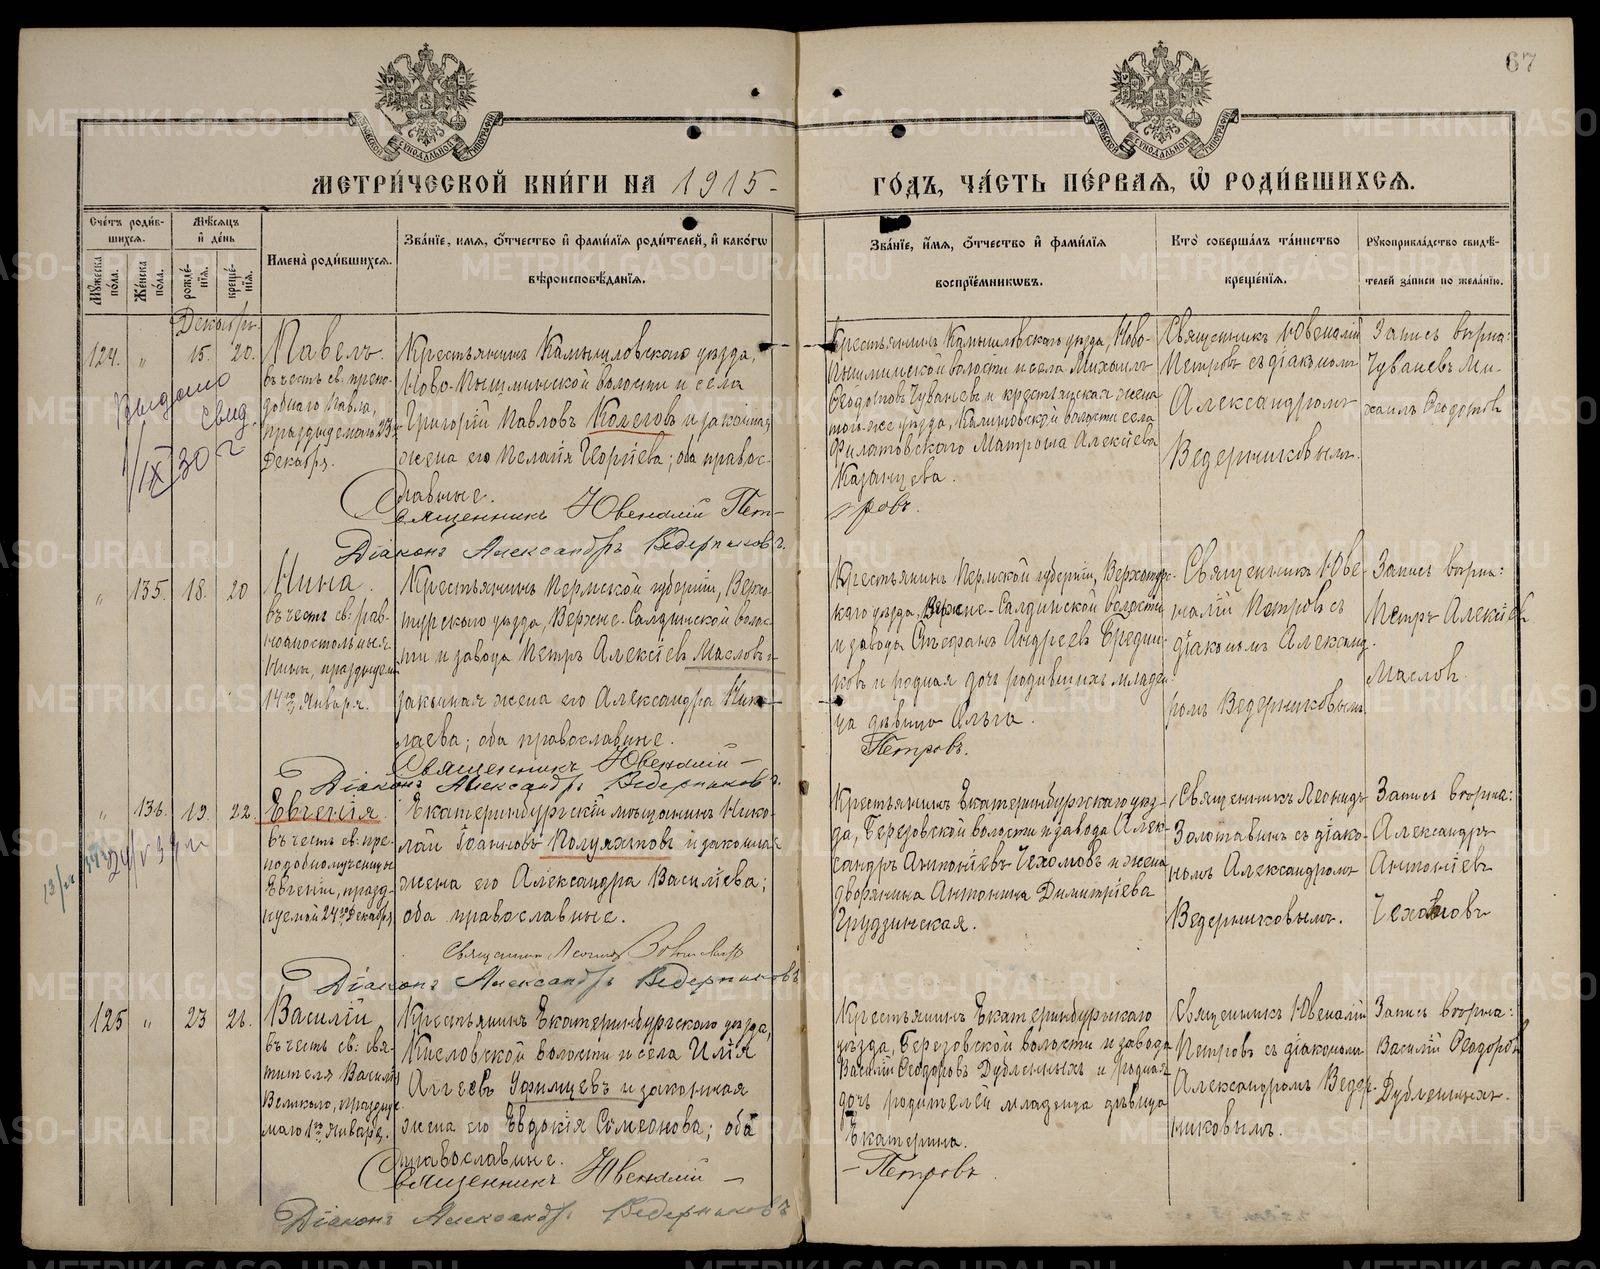 67
МЕТРИ́ЧЕСКОЙ КНИ́ГИ НА 1915 -
ГО́ДЪ, ЧА́СТЬ ПЕ́РВАЯ, Ѡ҆ РОДИ́ВШИХСЯ.
Сче́тъ роди́в-
шихся.
Мѣ́сяцъ
и҆ де́нь
Мꙋ́жеска по́ла.
Же́нска по́ла.
рожде́-нїя.
креще́-нїя.
И҆мена̀ роди́вшихся.
Зва́нїе, и҆мя, ѻ҆́тчество и҆ фами́лїя роди́телей, и҆ како́гѡ
вѣроисповѣ́данїя.
Зва́нїе, и҆́мя, ѻ҆́тчество и҆ фами́лїя
воспрїе́мникѡвъ.
Кто̀ соверша́лъ та́инство
креще́нїя.
Рꙋкоприкла́дство свидѣ́-
телей за́писи по жела́нїю.
Декабрь.
124. " 15. 20.
Павелъ.
въ честь св: препо-
добнаго Павла,
празднуемаго 23
Декабря.
Выдано
свид.
1/IX 30 г
Крестьянинъ Камышловскаго уѣзда,
Ново-Пышминской волости и села
Григорій Павловъ Колеговъ и законная
жена его Пелагія Георгіева; оба правос-
лавные.
Священникъ Ювеналій Пет-
Діаконъ Александръ Ведерниковъ.
Крестьянинъ Камышловскаго уѣзда, Ново-
Пышминской волости и села Михаилъ
Ѳеодотовъ Чуваневъ и крестьянская жена
того-же уѣзда, Калиновской волости села
Филатовскаго Матрона Алексіева
Казанцева.
ровъ.
Священникъ Ювеналій
Петровъ съ діакономъ
Александромъ
Ведерниковымъ.
Запись вѣрна:
Чуваневъ Ми-
хаилъ Ѳеодотов
" 135. 18. 20
Нина.
въ честь св: рав-
ноапостольныя
Нины, празднуем
14го Января.
Крестьянинъ Пермской губерніи, Верхо-
турскаго уѣзда, Верхне-Салдинской волос-
ти и завода Петръ Алексіевъ Масловъ и
законная жена его Александра Нико-
лаева; оба православные.
Священникъ Ювеналій -
Діаконъ Александръ Ведерниковъ.
Крестьянинъ Пермской губерніи, Верхотурс-
каго уѣзда, Верхне-Салдинской волости
и завода Стефанъ Андреевъ Ередни-
ковъ и родная дочь родившихъ младен-
ца дѣвица Ольга.
Петровъ.
Священникъ Юве-
налій Петровъ съ
діакономъ Александ-
ромъ Ведерниковым
Запись вѣрна:
Петръ Алексіев
Маслов.
" 136. 19. 22.
Евгенія.
въ честь св: пре-
подобномученицы
Евгеніи, празд-
нуемой 24го Декабря
Екатеринбургскій мѣщанинъ Нико-
лай Іоанновъ Полуяхтовъ и законная
жена его Александра Василіева;
оба православные.
Священникъ Леонидъ Золотавинъ
Діаконъ Александръ Ведерниковъ
Крестьянинъ Екатеринбургскаго уѣз-
да, Березовской волости и завода Алек-
сандръ Антоніевъ Чехомовъ и жена
дворянина Антонина Димитріева
Грудзинская.
Священникъ Леонидъ
Золотавинъ съ діако-
номъ Александромъ
Ведерниковымъ.
Запись вѣрна:
Александръ
Антоніевъ
Чехомовъ
125 " 23 26.
Василій
въ честь св: свя-
тителя Василія
Великаго, празднуе-
маго 1го Января.
Крестьянинъ Екатеринбургскаго уѣзда,
Кисловской волости и села Илія
Аггеевъ Уфимцевъ и законная
жена его Евдокія Симеонова; оба
православные.
Священникъ Ювеналій -
Діаконъ Александръ Ведерниковъ
Крестьянинъ Екатеринбургскаго
уѣзда, Березовской волости и завода
Василій Ѳеодоровъ Дубленныхъ и родная
дочь родителей младенца дѣвица
Екатерина.
- Петровъ
Священникъ Ювеналій
Петровъ съ діакономъ
Александромъ Ведер-
никовымъ.
Запись вѣрна:
Василій Ѳеодоровъ
Дубленныхъ.
METRIKI.GASO-URAL.RU